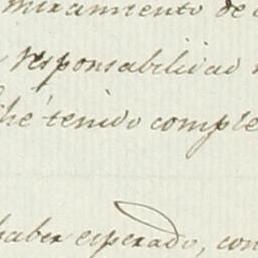 miramiento de
responsabilidad
he tenido comple
haber esperado, con